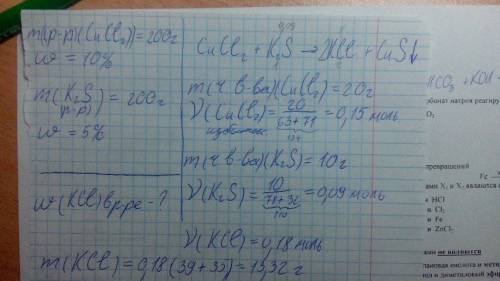 m(р-р)(CuCl₂)=200г
w = 10%
m(K₂S) = 200г
(р-р)
w = 5%
w(KCl) в р-ре - ?
0,09
CuCl₂ + K₂S → 2KCl + CuS↓
m(ч в-ва)(CuCl₂) = 20г
ν(CuCl₂) = 20/(63+71) = 0,15 моль
избыток 134
m(ч в-ва)(K₂S) = 10г
ν(K₂S) = 10/(78+32) = 0,09 моль
110
ν(KCl) = 0,18 моль
m(KCl) = 0,18(39+35) = 13,32г
HCO₃ + KOH
бонат натрия реагиру
O₃
превращений
Fe
ами X₁ и X₂ являются с
HCl
и Cl₂
и Fe
и ZnCl₂
ами не являются
пановая кислота и мети
л и диметиловый эфир